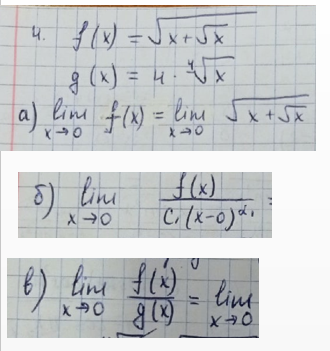 4. f(x) = √(x + √x)
g(x) = 4 · ⁴√x
а) lim x→0 f(x) = lim x→0 √(x + √x)
б) lim x→0 f(x) / C₁(x-0)^α₁ =
в) lim x→0 f(x)/g(x) = lim x→0